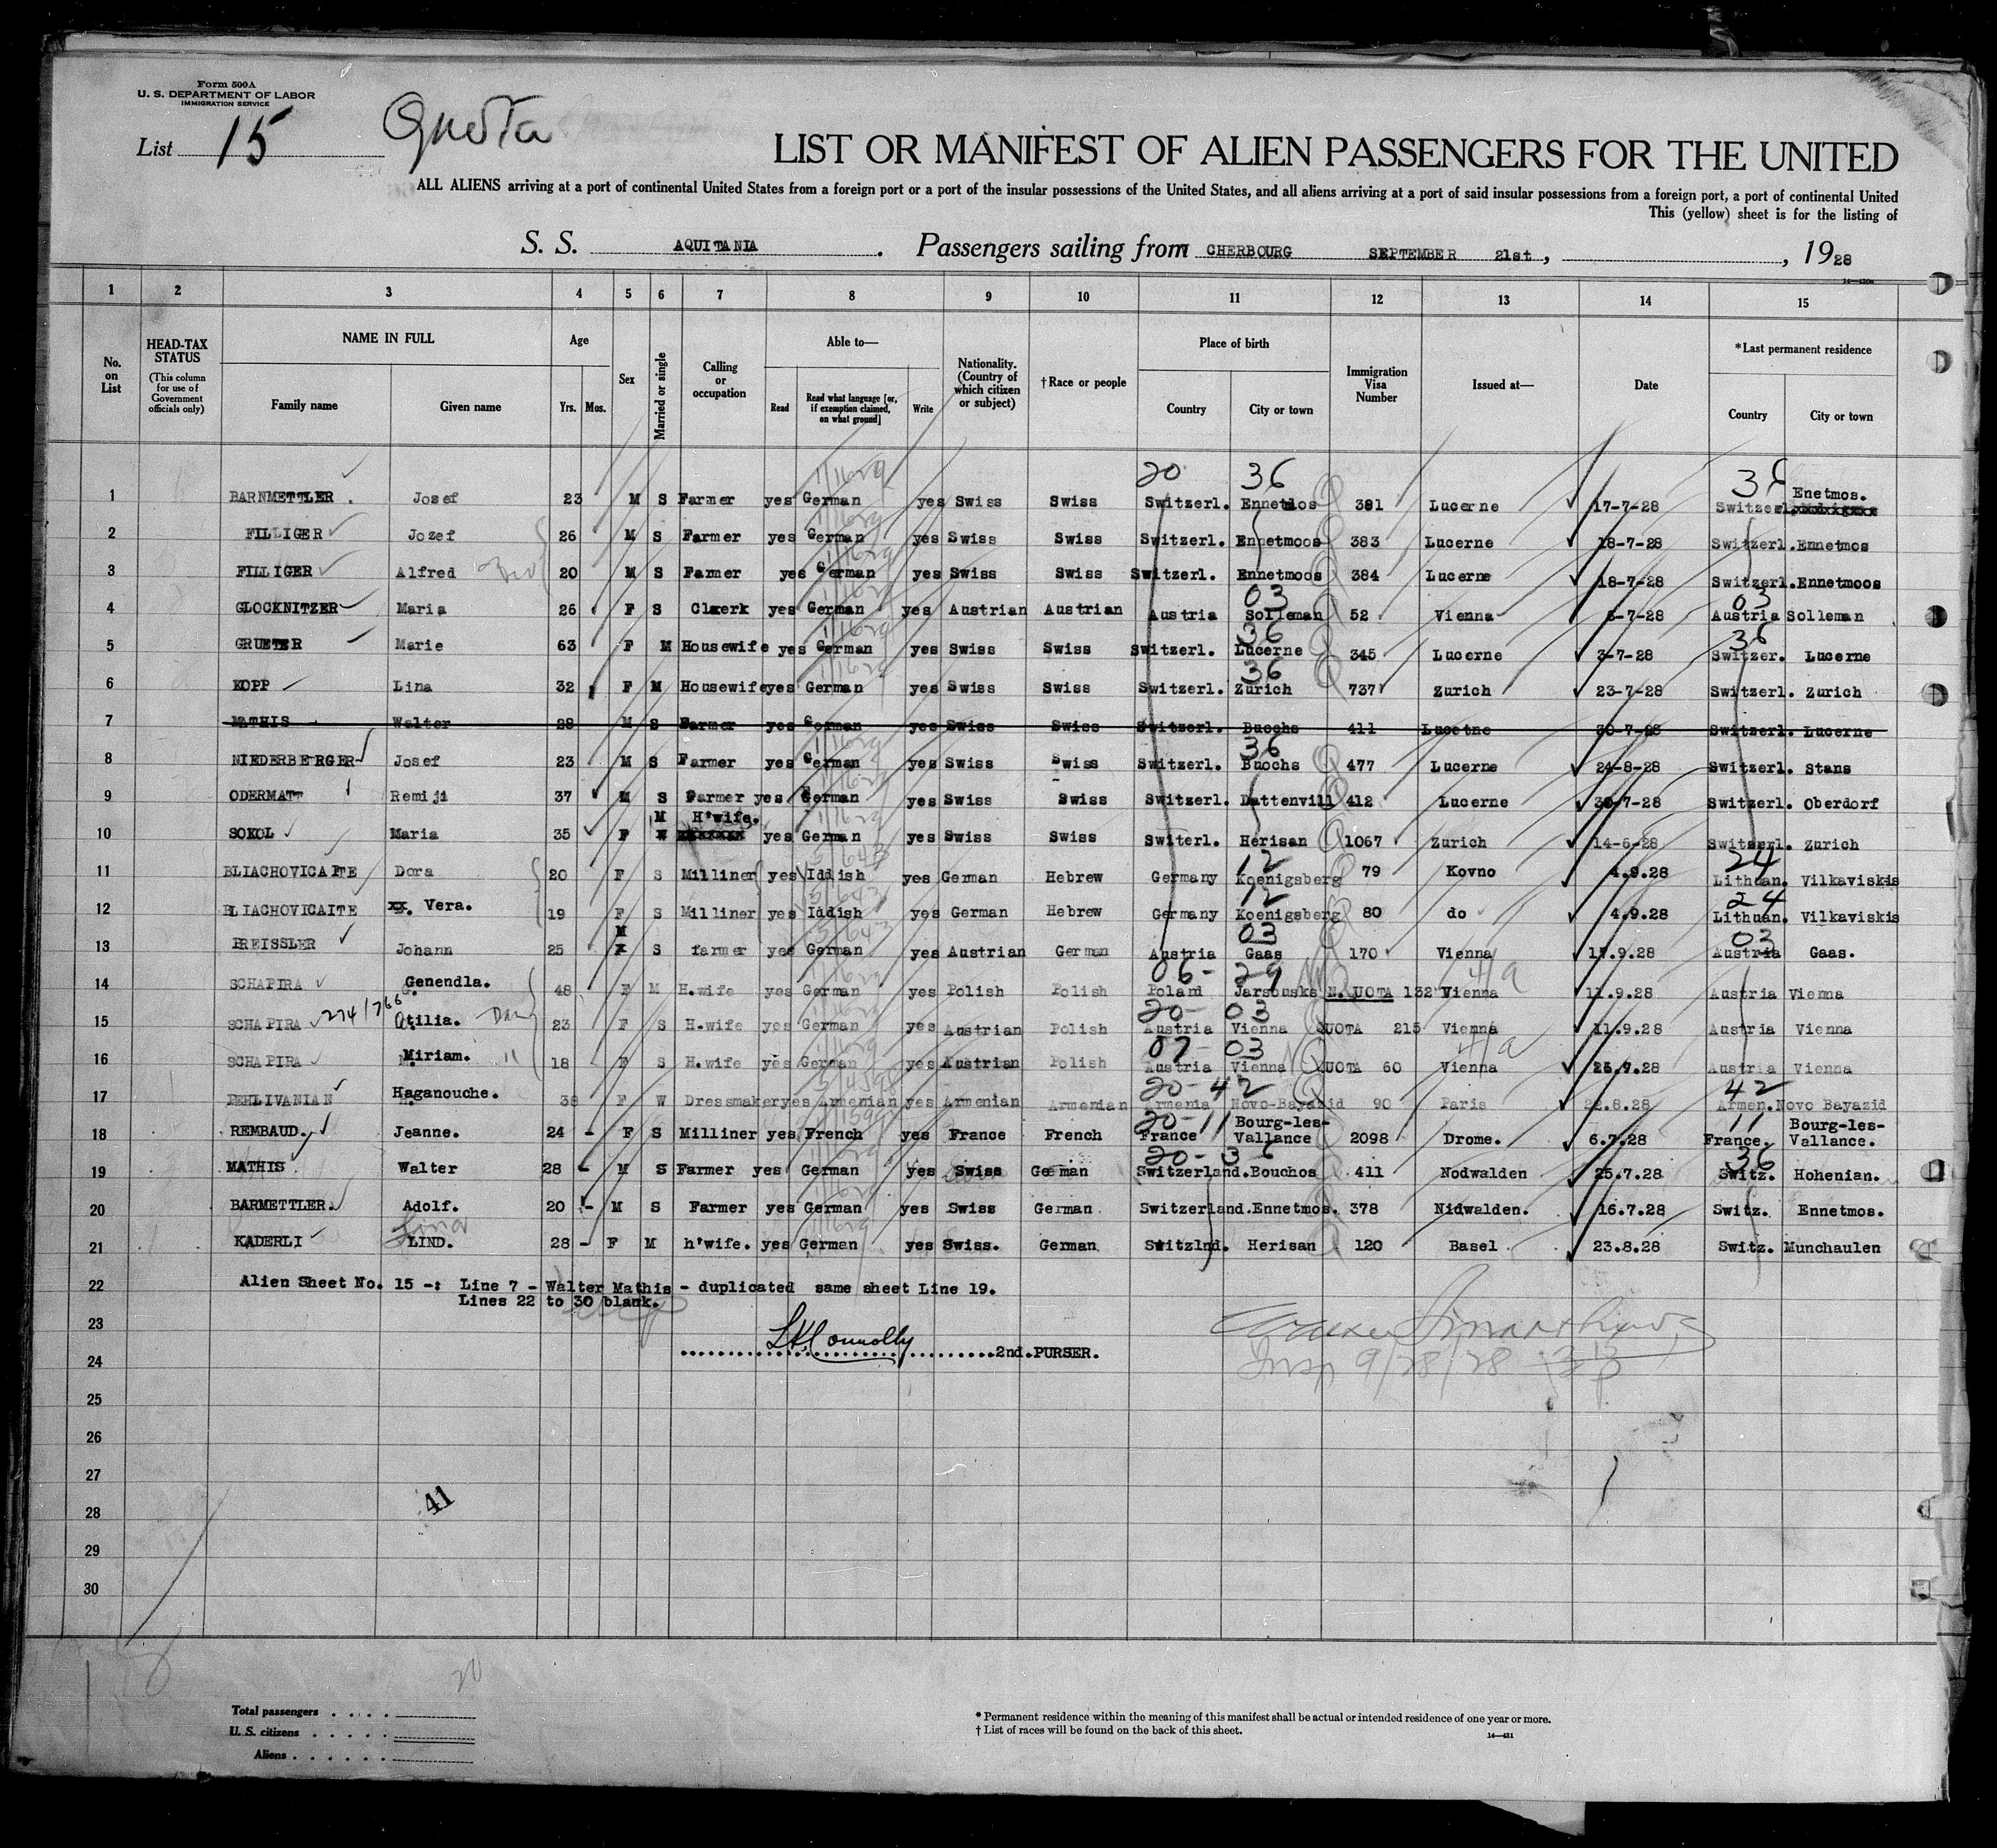 Form 500A
U. S. DEPARTMENT OF LABOR
IMMIGRATION SERVICE
List 15 Quota
LIST OR MANIFEST OF ALIEN PASSENGERS FOR THE UNITED
ALL ALIENS arriving at a port of continental United States from a foreign port or a port of the insular possessions of the United States, and all aliens arriving at a port of said insular possessions from a foreign port, a port of continental United
This (yellow) sheet is for the listing of
S. S. AQUITANIA. Passengers sailing from CHERBOURG SEPTEMBER 21st, , 1928
1 2 3 4 5 6 7 8 9 10 11 12 13 14 15
No. on List
HEAD-TAX STATUS
(This column for use of Government officials only)
NAME IN FULL
Family name Given name
Age
Yrs. Mos.
Sex
Married or single
Calling or occupation
Able to—
Read
Read what language [or, if exemption claimed, on what ground]
Write
Nationality. (Country of which citizen or subject)
†Race or people
Place of birth
Country City or town
Immigration Visa Number
Issued at—
Date
*Last permanent residence
Country City or town
20 36 36
1 BARNMETTLER. Josef 23 M S Farmer yes German yes Swiss Swiss Switzerl. Ennetmos 381 Lucerne 17-7-28 Switzerl. Enetmos.
2 FILLIGER Jozef 26 M S Farmer yes German yes Swiss Swiss Switzerl. Ennetmoos 383 Lucerne 18-7-28 Switzerl. Ennetmos
3 FILLIGER Alfred 20 M S Farmer yes German yes Swiss Swiss Switzerl. Ennetmoos 384 Lucerne 18-7-28 Switzerl. Ennetmoos
03 03
4 GLOCKNITZER Maria 26 F S Clerk yes German yes Austrian Austrian Austria Solleman 52 Vienna 6-7-28 Austria Solleman
36 36
5 GRUETER Marie 63 F M Housewife yes German yes Swiss Swiss Switzerl. Lucerne 345 Lucerne 3-7-28 Switzer. Lucerne
36
6 KOPP Lina 32 F M Housewife yes German yes Swiss Swiss Switzerl. Zurich 737 Zurich 23-7-28 Switzerl. Zurich
7 MATHIS Walter 28 M S Farmer yes German yes Swiss Swiss Switzerl. Buochs 411 Lucetne 30-7-28 Switzerl. Lucerne
36
8 NIEDERBERGER Josef 23 M S Farmer yes German yes Swiss Swiss Switzerl. Buochs 477 Lucerne 24-8-28 Switzerl. Stans
9 ODERMATT Remiji 37 M S Farmer yes German yes Swiss Swiss Switzerl. Dattenvill 412 Lucerne 30-7-28 Switzerl. Oberdorf
M H'wife.
10 SOKOL Maria 35 F yes German yes Swiss Swiss Switerl. Herisan 1067 Zurich 14-6-28 Switzerl. Zurich
12 24
11 BLIACHOVICAITE Dora 20 F S Milliner yes Iddish yes German Hebrew Germany Koenigsberg 79 Kovno 4.9.28 Lithuan. Vilkaviskis
12 24
12 BLIACHOVICAITE Vera. 19 F S Milliner yes Iddish yes German Hebrew Germany Koenigsberg 80 do 4.9.28 Lithuan. Vilkaviskis
M 03 03
13 PREISSLER Johann 25 S farmer yes German yes Austrian German Austria Gaas 170 Vienna 17.9.28 Austria Gaas.
06- 29
14 SCHAPIRA Genendla. 48 F M H.wife yes German yes Polish Polish Poland Jarsouska N. QUOTA 132 Vienna 11.9.28 Austria Vienna
20- 03
15 SCHAPIRA 274/766 Otilia. 23 F S H.wife yes German yes Austrian Polish Austria Vienna QUOTA 215 Vienna 11.9.28 Austria Vienna
07- 03
16 SCHAPIRA Miriam. 18 F S H.wife yes German yes Austrian Polish Austria Vienna QUOTA 60 Vienna 25.7.28 Austria Vienna
20- 42 42
17 PEHLIVANIAN Haganouche. 38 F W Dressmaker yes Armenian yes Armenian Armenian Armenia Novo-Bayazid 90 Paris 22.8.28 Armen. Novo Bayazid
20- 11 11
18 REMBAUD. Jeanne. 24 - F S Milliner yes French yes France French France Bourg-les-Vallance 2098 Drome. 6.7.28 France. Bourg-les-Vallance.
20- 36 36
19 MATHIS Walter 28 - M S Farmer yes German yes Swiss German Switzerland. Bouchos 411 Nodwalden 25.7.28 Switz. Hohenian.
20 BARMETTLER. Adolf. 20 - M S Farmer yes German yes Swiss German Switzerland. Ennetmos. 378 Nidwalden. 16.7.28 Switz. Ennetmos.
Lina
21 KADERLI LIND. 28 - F M h'wife. yes German yes Swiss. German Switzlnd. Herisan 120 Basel 23.8.28 Switz. Munchaulen
22 Alien Sheet No. 15 -: Line 7 - Walter Mathis - duplicated same sheet Line 19.
Lines 22 to 30 blank.
23
24 2nd. PURSER.
Insp 9/28/28
25
26
27
28 41
29
30
20
Total passengers . . . .
U. S. citizens . . . . .
Aliens . . . . . .
* Permanent residence within the meaning of this manifest shall be actual or intended residence of one year or more.
† List of races will be found on the back of this sheet.
14—431